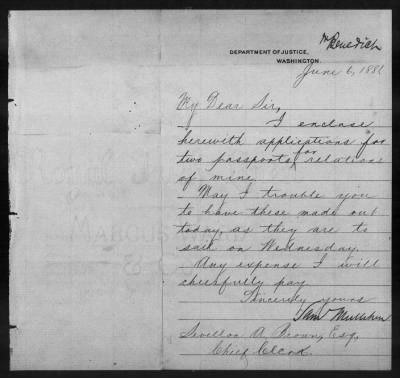 Mr Benedict
DEPARTMENT OF JUSTICE,
WASHINGTON.
June 6, 1881
My Dear Sir,
I enclose
herewith applications for
two passports for relations
of mine.
May I trouble you
to have these made out
today, as they are to
sail on Wednesday.
Any expense I will
cheerfully pay.
Sincerely yours
Saml Mulliken
Sevellon A. Brown, Esq,
Chief Clerk.
MARCUS
& C